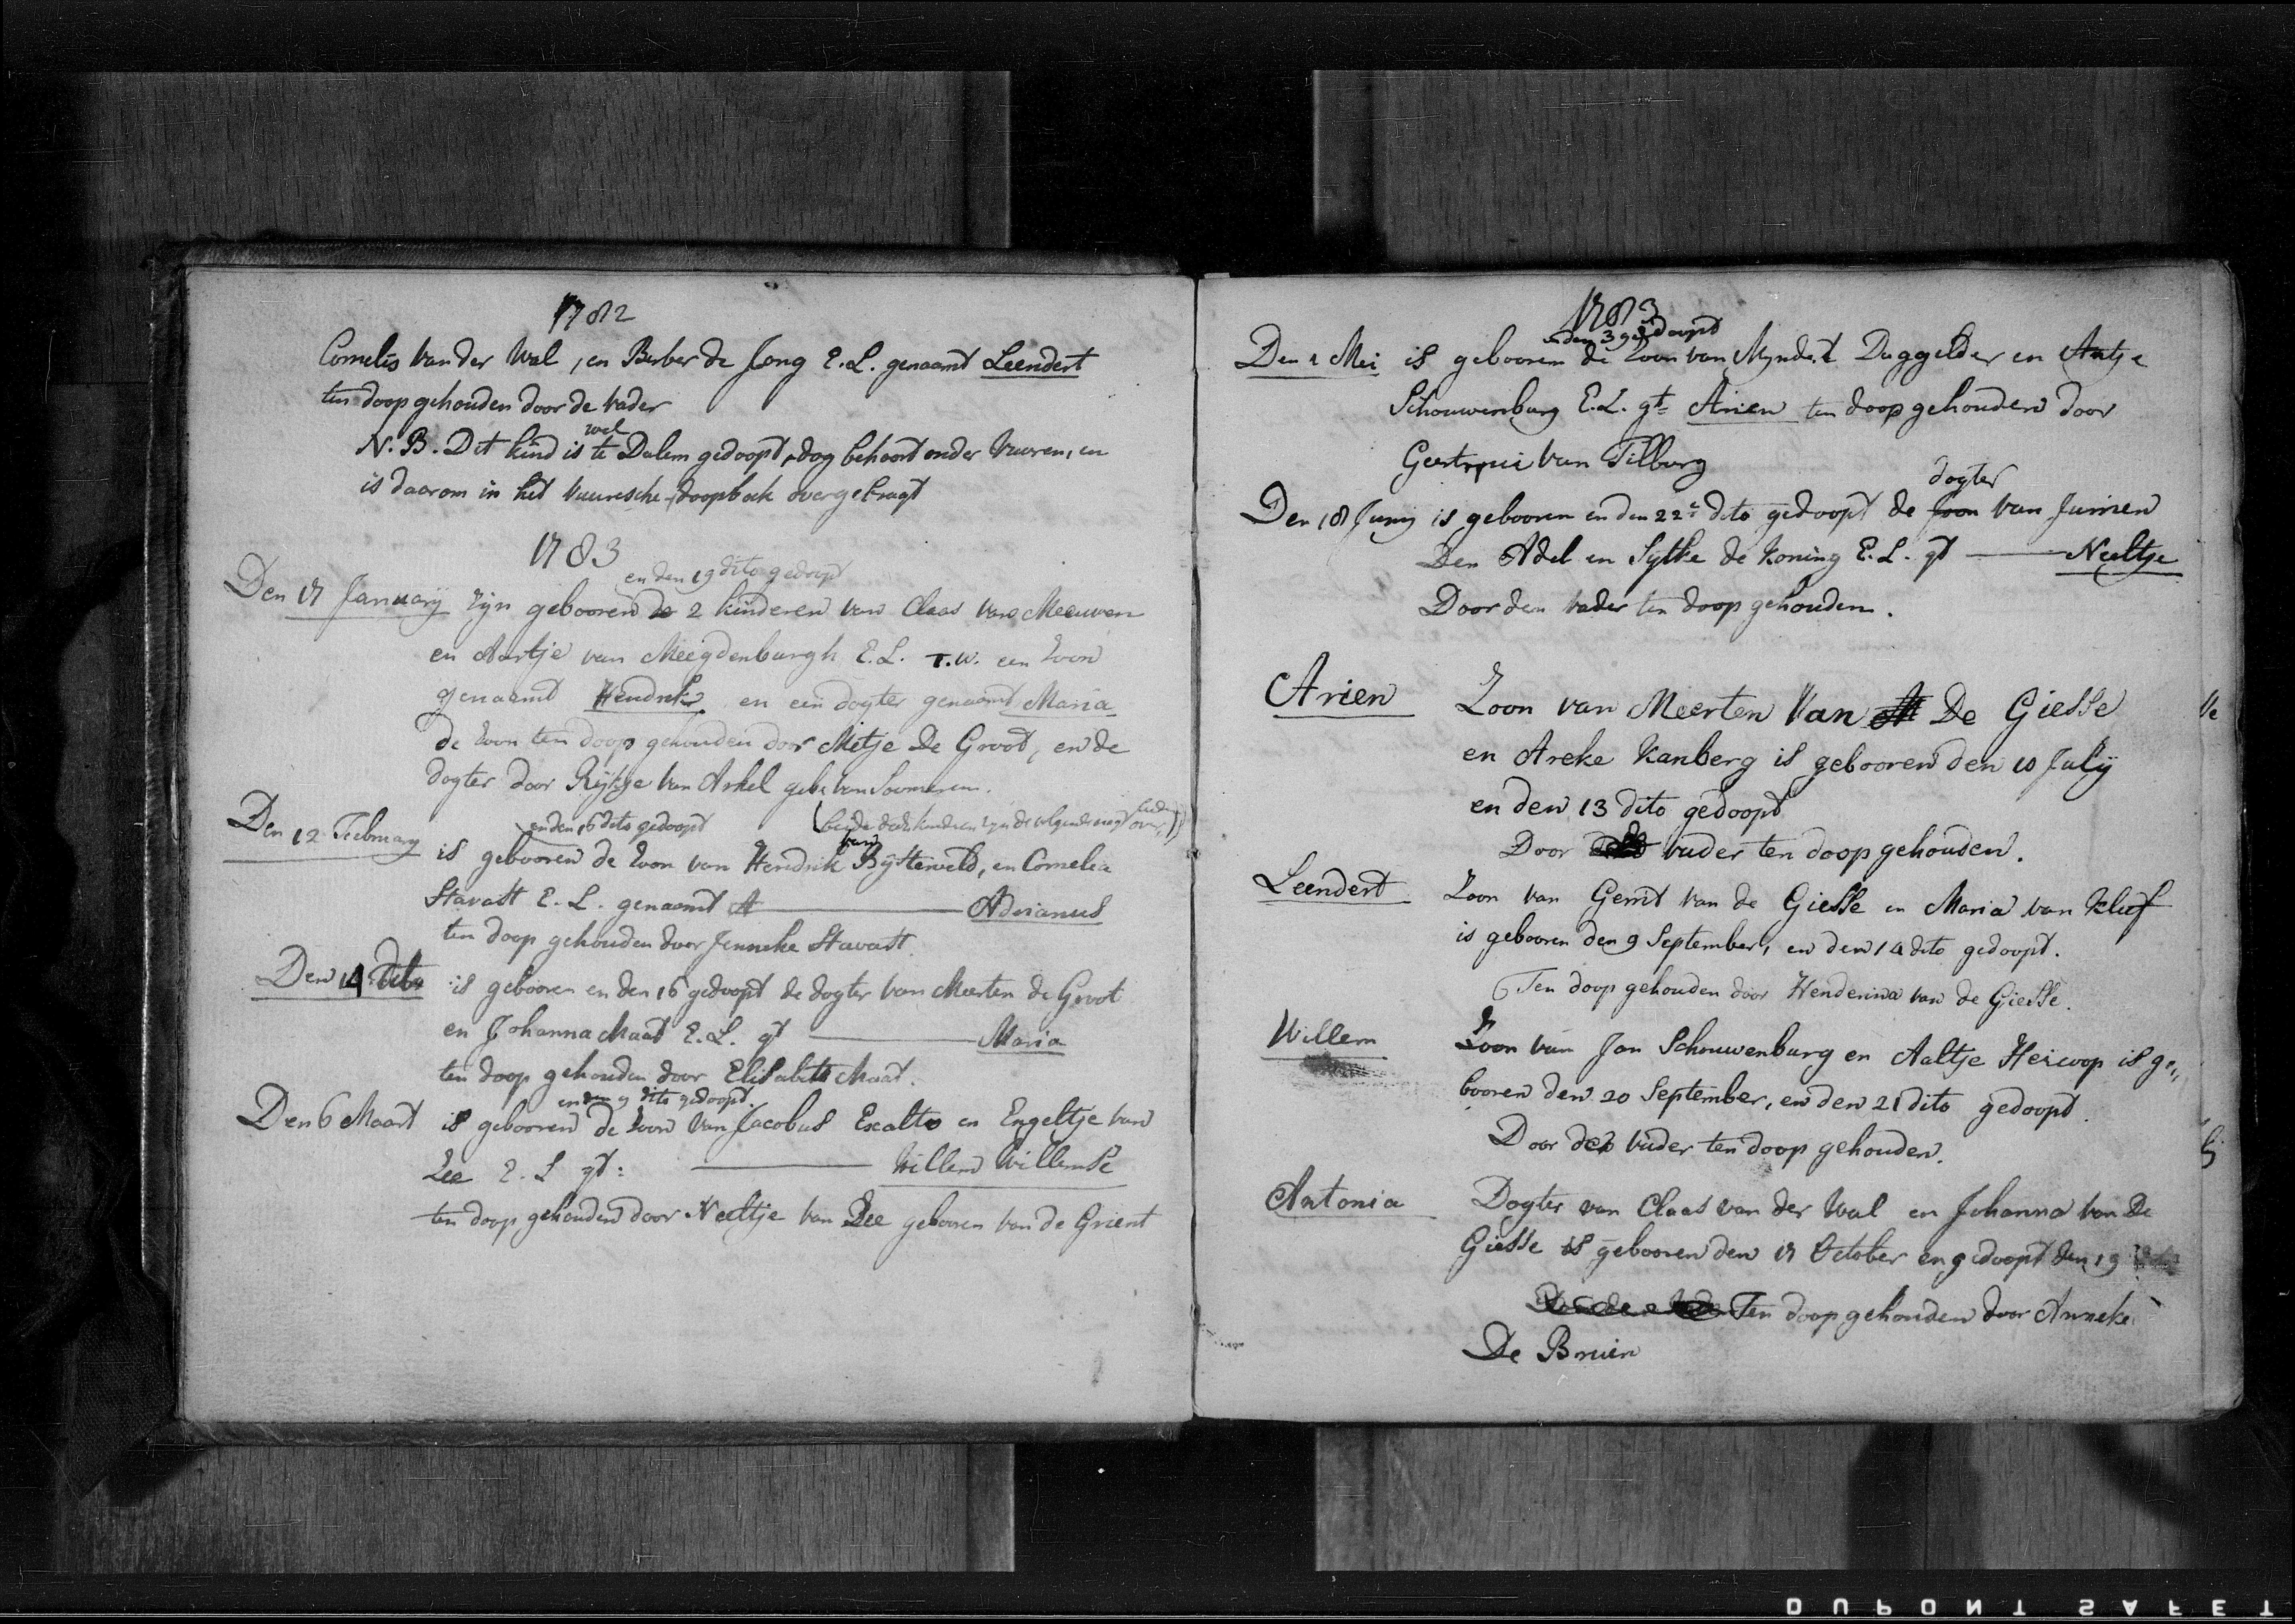 1782
Cornelis van der Wal, en Berber de Jong E.L. genaamt Leendert
ten doop gehouden door de vader
wel
N.B. Dit kind is te Dalem gedoopt, dog behoort onder Vuuren, en
is daarom in het Vuurensche doopboek overgebragt
1783
en den 19 dito gedoopt
Den 17 January zijn gebooren de 2 kinderen van Claas van Meeuwen
en Aartje van Meigdenburgh E.L. T.W. een zoon
genaamt Hendrik en een dogter genaamt Maria
de zoon ten doop gehouden door Metje De Groot, en de
dogter door Rijkje van Arkel geb: van Soomeren.
en den 16 dito gedoopt (beide deze kinderen zijn de volgende nagt
Den 12 Feebruary is gebooren de zoon van Hendrik van Bijsterveld, en Cornelia
Stavast E.L. genaamt A Adrianus
ten doop gehouden door Jenneke Stavast
Den 14 dito is gebooren en den 16 gedoopt de dogter van Meerten de Groot
en Johanna Maat E.L. gt Maria
ten doop gehouden door Elisabeth Maat.
en den 9 dito gedoopt.
Den 6 Maart is gebooren de zoon van Jacobus Exalto en Engeltje van
Zee E.L gt: Willem Willemse
ten doop gehouden door Neeltje van Zee gebooren van de Grient
1783
en den 3 gedoopt
Den 1 Mei is gebooren de zoon van Myndert Daggelder en Antje
Schouwenburg E.L. gt= Arien ten doop gehouden door
van Tilburg
dogter
Den 18 Juny is gebooren en den 22e dito gedoopt de zoon van Jurrien
Den Adel en Sijtke de Koning E.L. gt Neeltje
Door den vader ten doop gehouden.
Arien Zoon van Meerten Van De Giesse
en Areke Kanberg is gebooren den 10 July
en den 13 dito gedoopt
Door de vader ten doop gehouden.
Leendert Zoon van Gerrit van de Giesse en Maria van Kleef
is gebooren den 9 September, en den 14 dito gedoopt.
Ten doop gehouden door Henderina van de Giesse.
Willem Zoon van Jan Schouwenburg en Aaltje Heicoop is ge„
booren den 20 September, en den 21 dito gedoopt.
Door den vader ten doop gehouden.
Antonia Dogter van Claas van der Wal en Johanna van De
Giesse is gebooren den 17 October en gedoopt den 19
Ten doop gehouden door Anneke
De Bruin
DUPONT SAFET